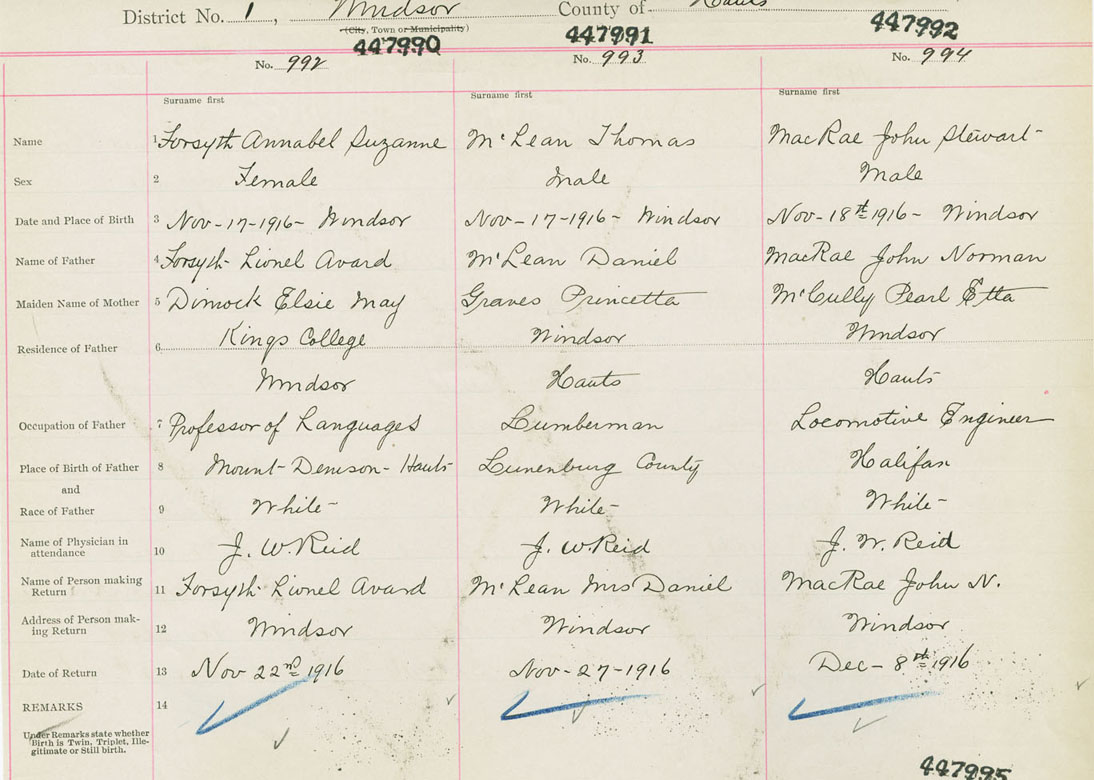 District No. 1, Windsor County of Hants
(City, Town or Municipality)
447990 447991 447992
No. 992 No. 993 No. 994
Surname first Surname first Surname first
Name 1 Forsyth Annabel Suzanne McLean Thomas MacRae John Stewart
Sex 2 Female Male Male
Date and Place of Birth 3 Nov-17-1916- Windsor Nov-17-1916- Windsor Nov-18th 1916- Windsor
Name of Father 4 Forsyth Lionel Avard McLean Daniel MacRae John Norman
Maiden Name of Mother 5 Dimock Elsie May Graves Princetta McCully Pearl Etta
Residence of Father 6 Kings College Windsor Windsor
Windsor Hants Hants
Occupation of Father 7 Professor of Languages Lumberman Locomotive Engineer
Place of Birth of Father 8 Mount-Denison-Hants Lunenburg County Halifax
and
Race of Father 9 White- White- White-
Name of Physician in
attendance 10 J. W. Reid J. W. Reid J. W. Reid
Name of Person making
Return 11 Forsyth Lionel Avard McLean Mrs Daniel MacRae John N.
Address of Person mak-
ing Return 12 Windsor Windsor Windsor
Date of Return 13 Nov 22nd 1916 Nov-27-1916 Dec-8th 1916
REMARKS 14
Under Remarks state whether
Birth is Twin, Triplet, Ille-
gitimate or Still birth.
447995